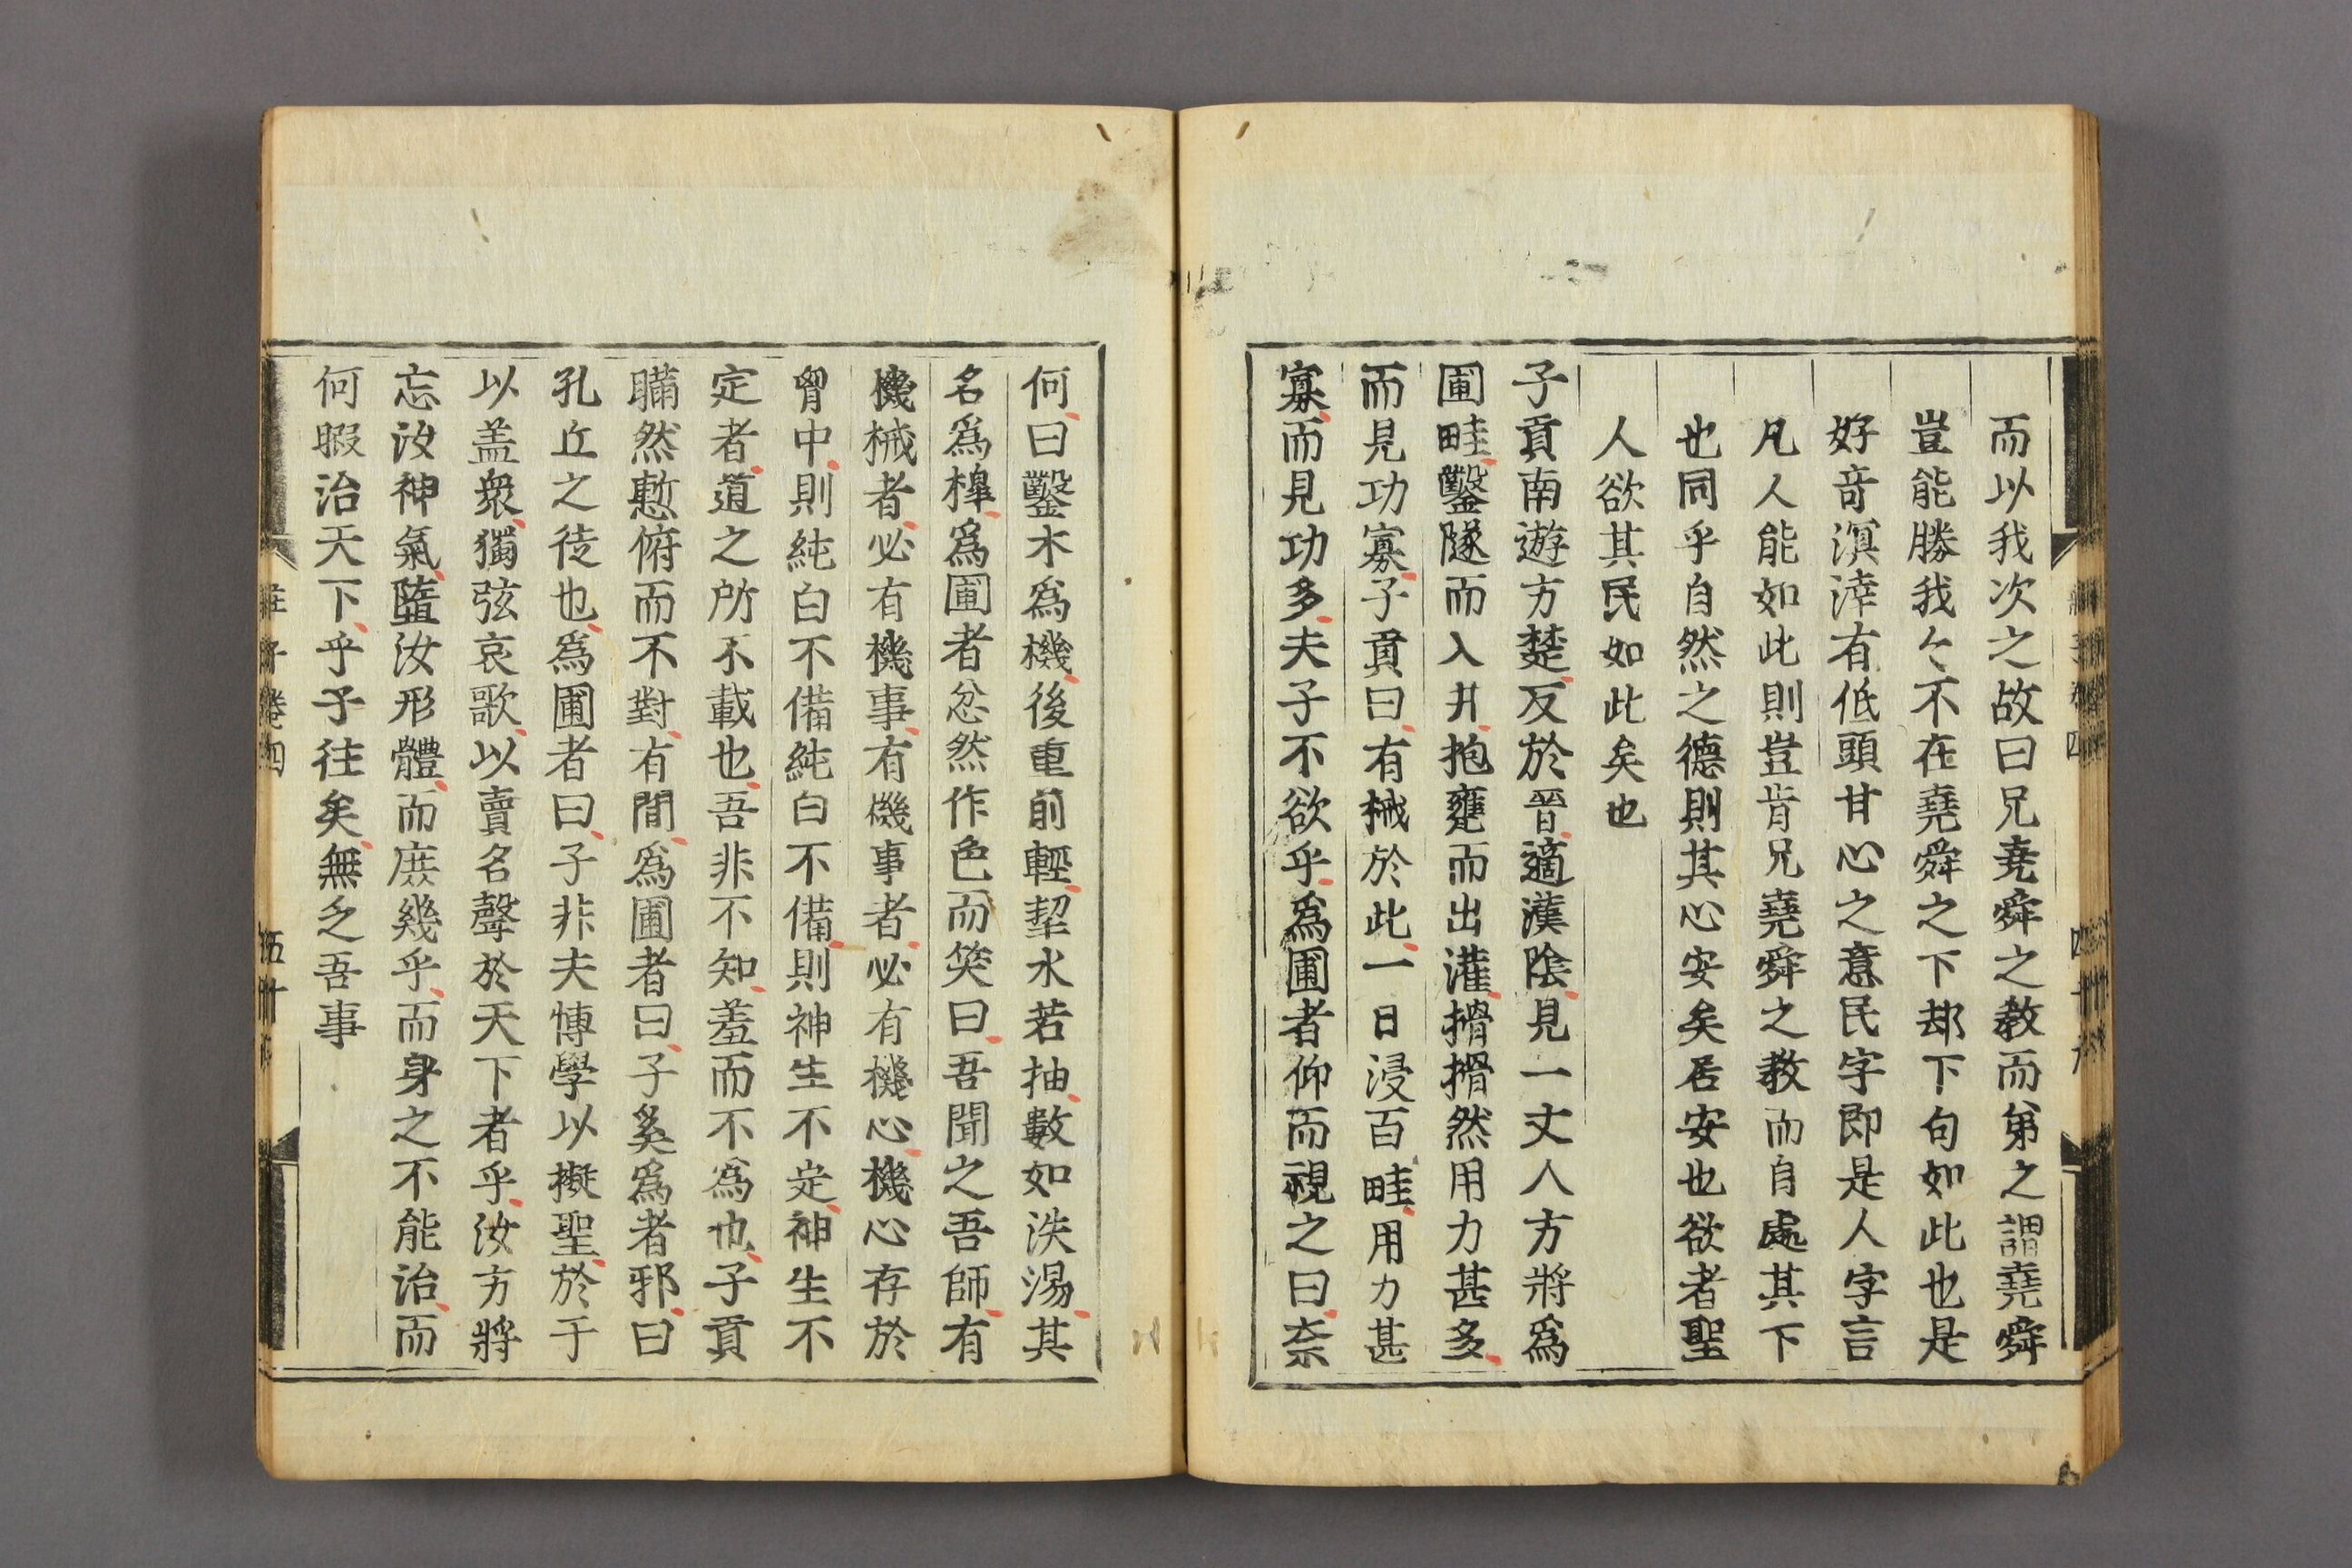 而以我次之故曰兄堯舜之教而第之謂堯舜
豈能勝我々不在堯舜之下却下句如此也是
好竒溟涬有低頭甘心之意民字即是人字言
凡人能如此則豈肯兄堯舜之教而自處其下
也同乎自然之德則其心安矣居安也欲者聖
人欲其民如此矣也
子貢南遊方楚反於晉適漢陰見一丈人方將爲
圃畦鑿隧而入井抱甕而出灌搰搰然用力甚多
而見功寡子貢曰有械於此一日浸百畦用力甚
寡而見功多夫子不欲乎爲圃者仰而視之曰柰
何曰鑿木爲機後重前輕挈水若抽數如泆湯其
名爲槔爲圃者忿然作色而笑曰吾聞之吾師有
機械者必有機事有機事者必有機心機心存於
胷中則純白不備純白不備則神生不定神生不
定者道之所不載也吾非不知羞而不爲也子貢
瞞然慙俯而不對有間爲圃者曰子奚爲者邪曰
孔丘之徒也爲圃者曰子非夫博學以擬聖於于
以盖衆獨弦哀歌以賣名聲於天下者乎汝方將
忘汝神氣墮汝形體而庶幾乎而身之不能治而
何暇治天下乎子往矣無乏吾事
莊子卷四
五十